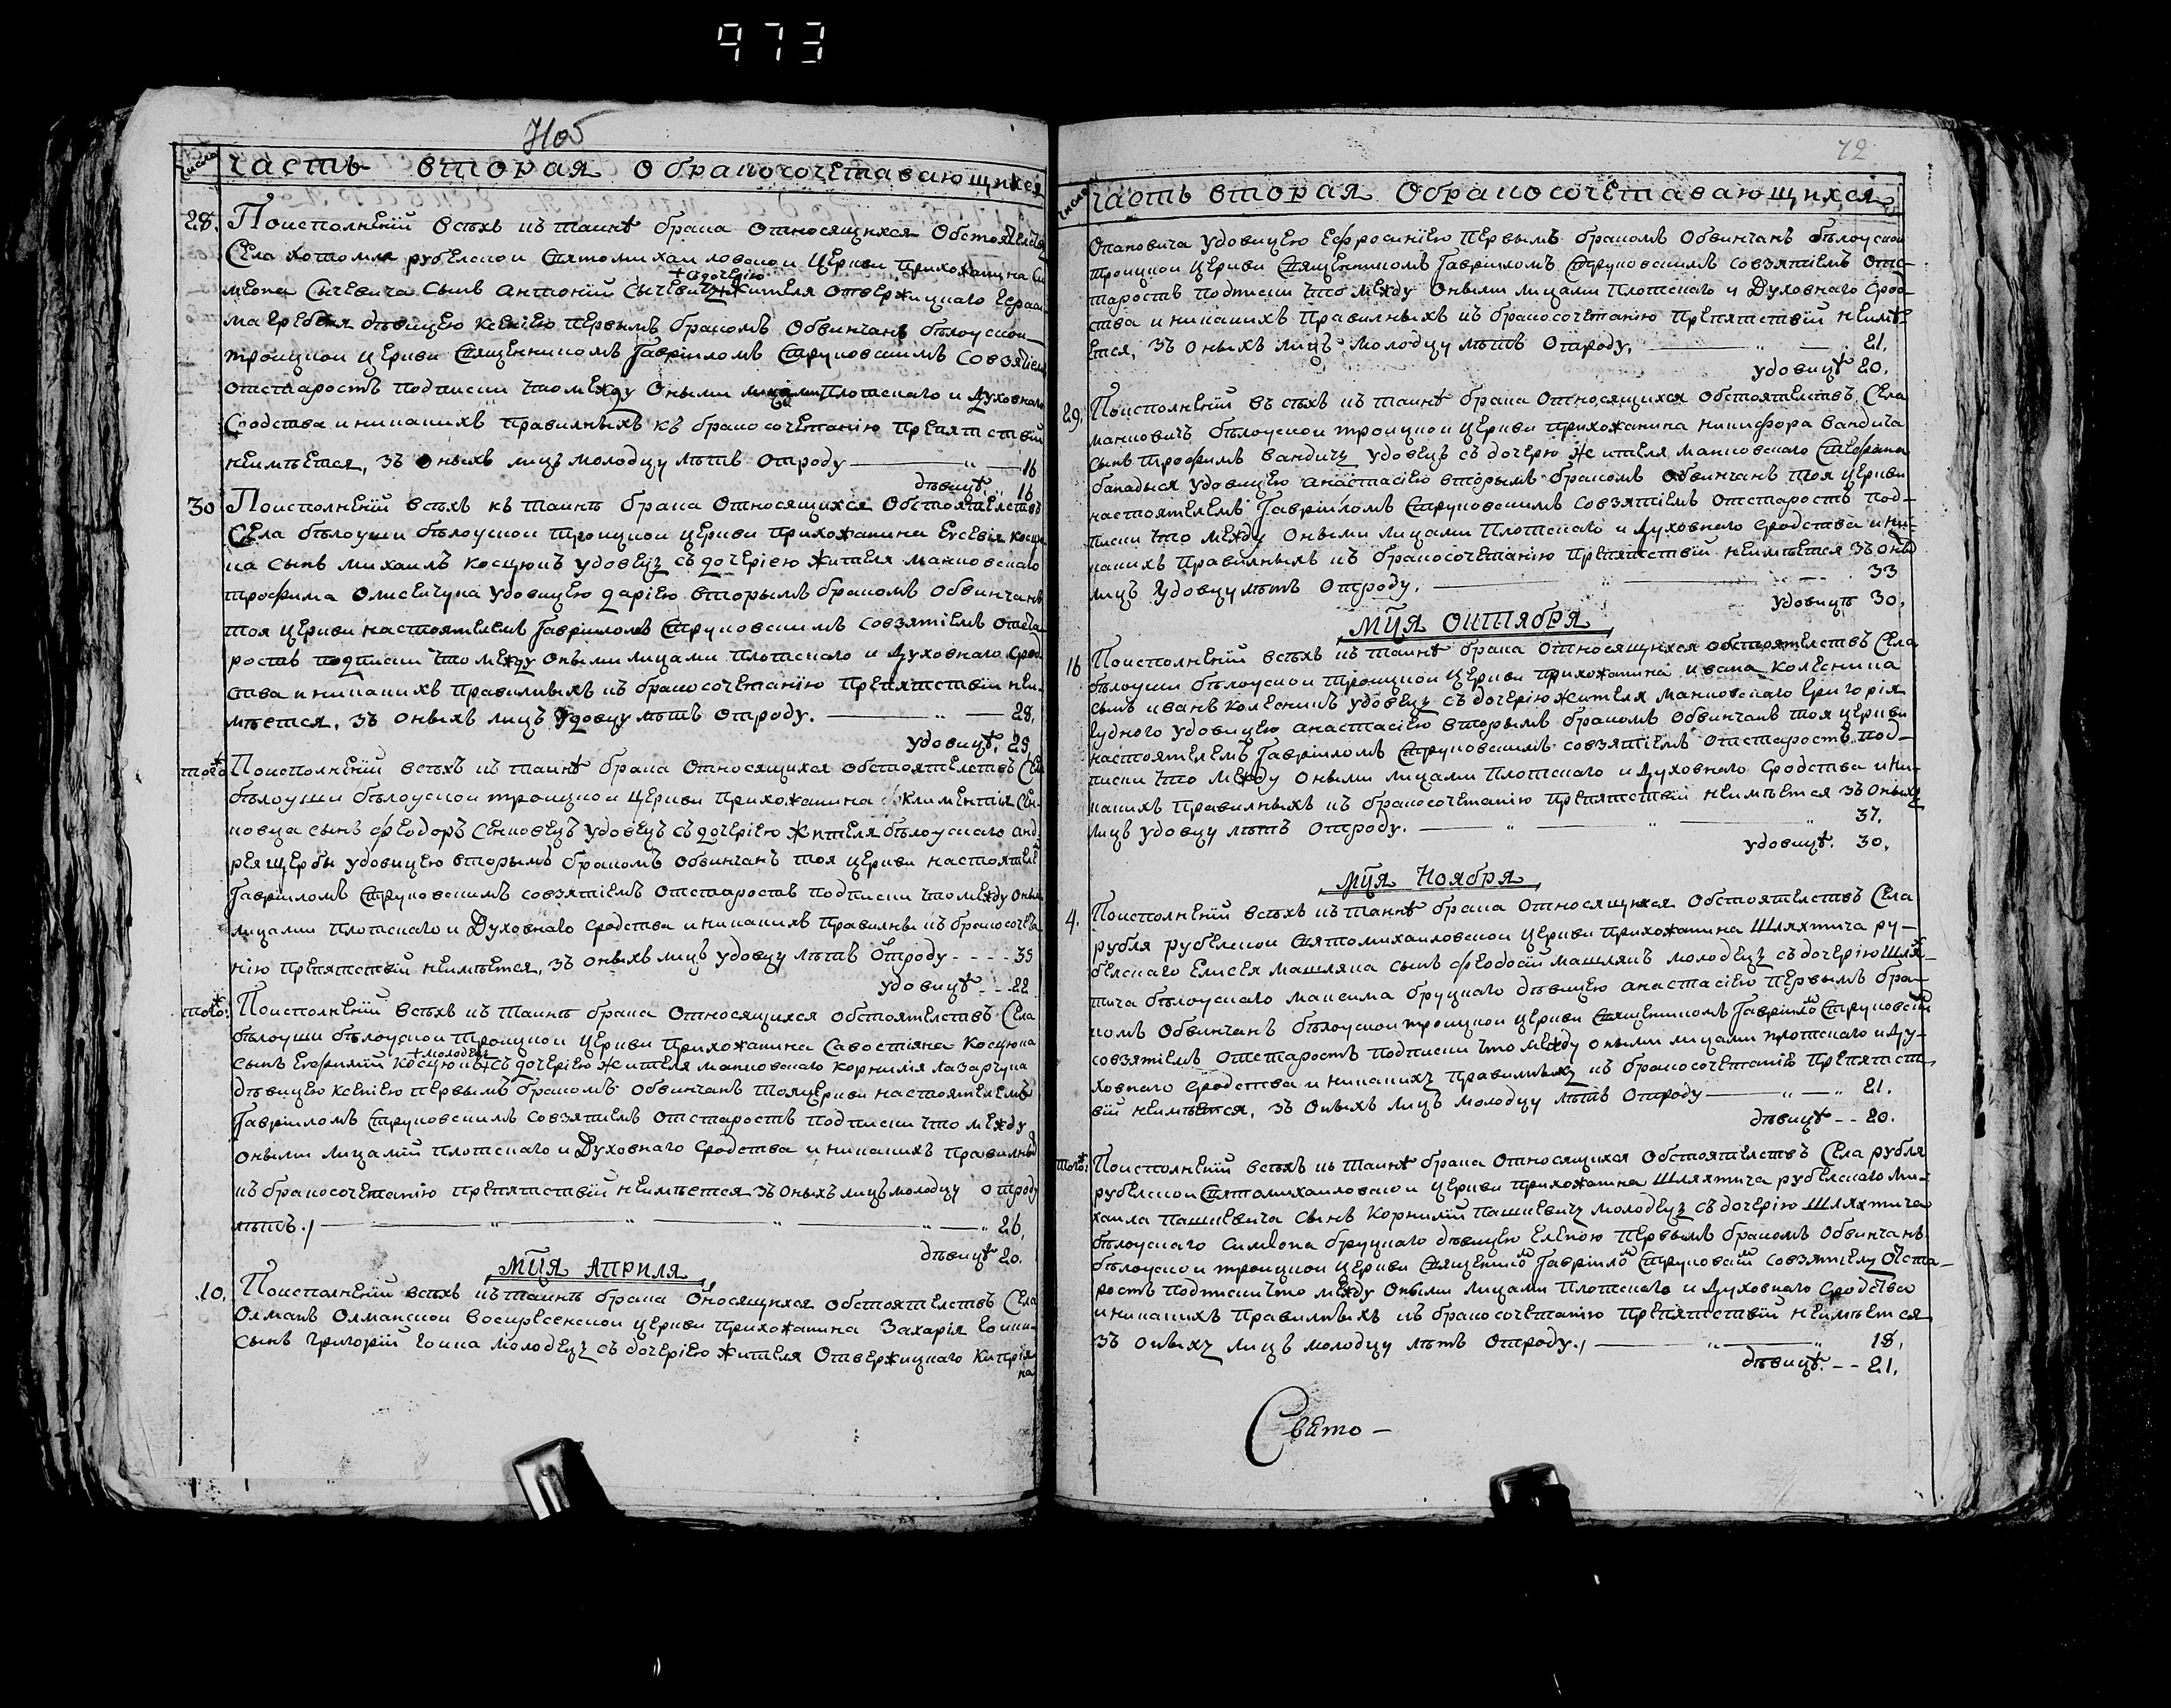 973
число часть вторая О бракосочетавающихся
28. Поисполнении всѣхъ къ таинѣ брака относящихся Обстоятелствъ
Села хотомля рубелской Святомихаиловской Церкви прихожанина Си
меона Сычевича Сынъ Антоній Сычевичъ жителя Отвержицкаго
+ съдочерію
дѣвицею Ксеніею первымъ бракомъ Обвинчанъ бѣлоуской
троицкой Церкви Священникомъ Гавріиломъ Струковскимъ совзятіемъ
отстаростъ подписки что между Оными лицами Плотскаго и Духовнаго
Сродства иникакихъ правилныхъ къ бракосочетанію препятствій
неимѣется, зъ оныхъ лицъ молодцу лѣтъ Отроду — 16
дѣвицѣ 16
30 Поисполнении всѣхъ къ таинѣ брака Относящихся Обстоятелствъ
Села бѣлоуши бѣлоуской Троицкой Церкви прихожанина Евсевія Косцю
ка сынъ михаилъ косцюкъ удовецъ съдочеріею жителя манковскаго
трофима Олисейчука удовицею даріею вторымъ бракомъ Обвинчанъ
тоя Церкви настоятелемъ Гавріиломъ Струковскимъ Совзятіемъ отста
ростъ подписки что между оными лицами плотскаго и Духовнаго Срод
ства иникакихъ правилныхъ къ бракосочетанію Препятствій неи
мѣется, зъ оныхъ лицъ Удовцу лѣтъ Отроду. — 28.
удовицѣ. 25
тогож Поисполнении всѣхъ къ таинѣ брака Относящихся обстоятелствъ Села
бѣлоуши бѣлоуской троицкой Церкви Прихожанина Климентія Сен
ковца сынъ феодоръ Сенковецъ удовецъ съдочеріею жителя бѣлоускаго анд
рея щербы удовицею вторымъ бракомъ обвинчанъ тоя церкви настоятеле
Гавріиломъ Струковскимъ совзятіемъ отстаростъ подписки что между оным
лицами плотскаго и Духовнаго сродства иникакихъ правилны къ бракосочета
нію препятствій неимѣется, зъ оныхъ лицъ удовцу лѣтъ Отроду - - - - 35
удовицѣ - - 22
тогож: Поисполнении всѣхъ къ Таинѣ брака Относящихся обстоятелствъ Села
бѣлоуши бѣлоуской Троицкой Церкви Прихожанина Савостіяна Косцюка
+ молодецъ
сынъ Евфимій косцюкъ съдочеріею жителя манковскаго корнилія лазарчука
дѣвицею ксеніею первымъ бракомъ обвинчанъ Тояцеркви настоятелемъ
Гавріиломъ Струковскимъ совзятіемъ отстаростъ подписки что между
оными лицамій плотскаго и Духовнаго Сродства иникакихъ правилныхъ
къ бракосочетанію препятствій неимѣется зъ оныхъ лицъ молодцу отроду
лѣтъ. — 26,
дѣвицѣ 20.
мца Априля
10. Поисполнении всѣхъ къ таинѣ брака Оносящихся обстоятелствъ Села
Олманъ Олманской Воскресенской Церкви прихожанина Захарія
Сынъ григорій молодецъ съ дочеріею жителя Отвержицкаго Кипрія
на
72
число часть вторая О бракосочетавающихся
Опановича удовицею Ефросиніею первымъ бракомъ Обвинчанъ бѣлоуской
троицкой церкви Священникомъ Гавріиломъ Струковскимъ совзятіемъ отс
таростъ подписки что между Оными лицами плотскаго и Духовнаго срод
ства иникакихъ правилныхъ къ бракосочетанію препятствій неимѣ
ется, зъ оныхъ лицъ молодцу лѣтъ Отроду, — 21.
удовицѣ 20.
29. Поисполнении всѣхъ къ таинѣ брака Относящихся обстоятелствъ Села
манковичъ бѣлоуской троицкой Церкви прихожанина никифора вандича
сынъ трофимъ вандичъ удовецъ съ дочерію жителя манковскаго Стефана
удовицею анастасіею вторымъ бракомъ обвинчанъ тоя церкви
настоятелемъ Гавріиломъ Струковскимъ Совзятіемъ отстаростъ под
писки что между Оными лицами плотскаго и Духовнаго сродства ини
какихъ правилныхъ къ бракосочетанію препятствій неимѣется зъ оных
лицъ Удовцу лѣтъ Отроду. — 33
удовицѣ 30.
мца Октября
16 Поисполнении всѣхъ къ таинѣ брака Относящихся обстоятелствъ Села
бѣлоуши бѣлоуской троицкой церкви прихожанина ивана колесника
сынъ иванъ колесникъ удовецъ съ дочерію жителя манковскаго григорія
удовицею анастасіею вторымъ бракомъ обвинчанъ тоя церкви
настоятелемъ Гавріиломъ Струковскимъ совзятіемъ отстаростъ под
писки что между оными лицами Плотскаго и Духовнаго Сродства ини
какихъ правилныхъ къ бракосочетанію препятствій неимѣется зъ оныхъ
лицъ удовцу лѣтъ Отроду. — 37.
удовицѣ. 30.
мца Ноября
4. Поисполнении всѣхъ къ таинѣ брака Относящихся Обстоятелствъ Села
рубля рубелской Святомихаиловской Церкви прихожанина шляхтича ру
белскаго Елисея машляка сынъ феодосій машлякъ молодецъ съ дочерію шлях
тича бѣлоускаго максима бруцкаго дѣвицею анастасіею первымъ бра
комъ обвинчанъ бѣлоуской троицкой церкви Священникомъ Гавріило Струковски
совзятіемъ отстаростъ подписки что между оными лицами плотскаго иду
ховнаго сродства и никакихъ правилныхъ къ бракосочетанію препятст
вій неимѣется, зъ оныхъ лицъ молодцу лѣтъ Отроду — 21.
дѣвицѣ - - 20.
тогож: Поисполнении всѣхъ къ таинѣ брака Относящихся Обстоятелствъ Села рубля
рубелской Святомихаиловской Церкви прихожанина шляхтича рубелскаго ми
хаила пашкевича сынъ корнилій пашкевичъ молодецъ съ дочерію шляхтича
бѣлоускаго симеона бруцкаго дѣвицею еленою первымъ бракомъ обвинчанъ
бѣлоуской троицкой церкви Священнико Гавріило Струковски совзятіемъ отста
ростъ подписки что между Оными лицами плотскаго и духовнаго сродства
иникакихъ правилныхъ къ бракосочетанію препятствій неимѣется
зъ оныхъ лицъ молодцу лѣтъ отроду. — 18.
дѣвицѣ. - - 21.